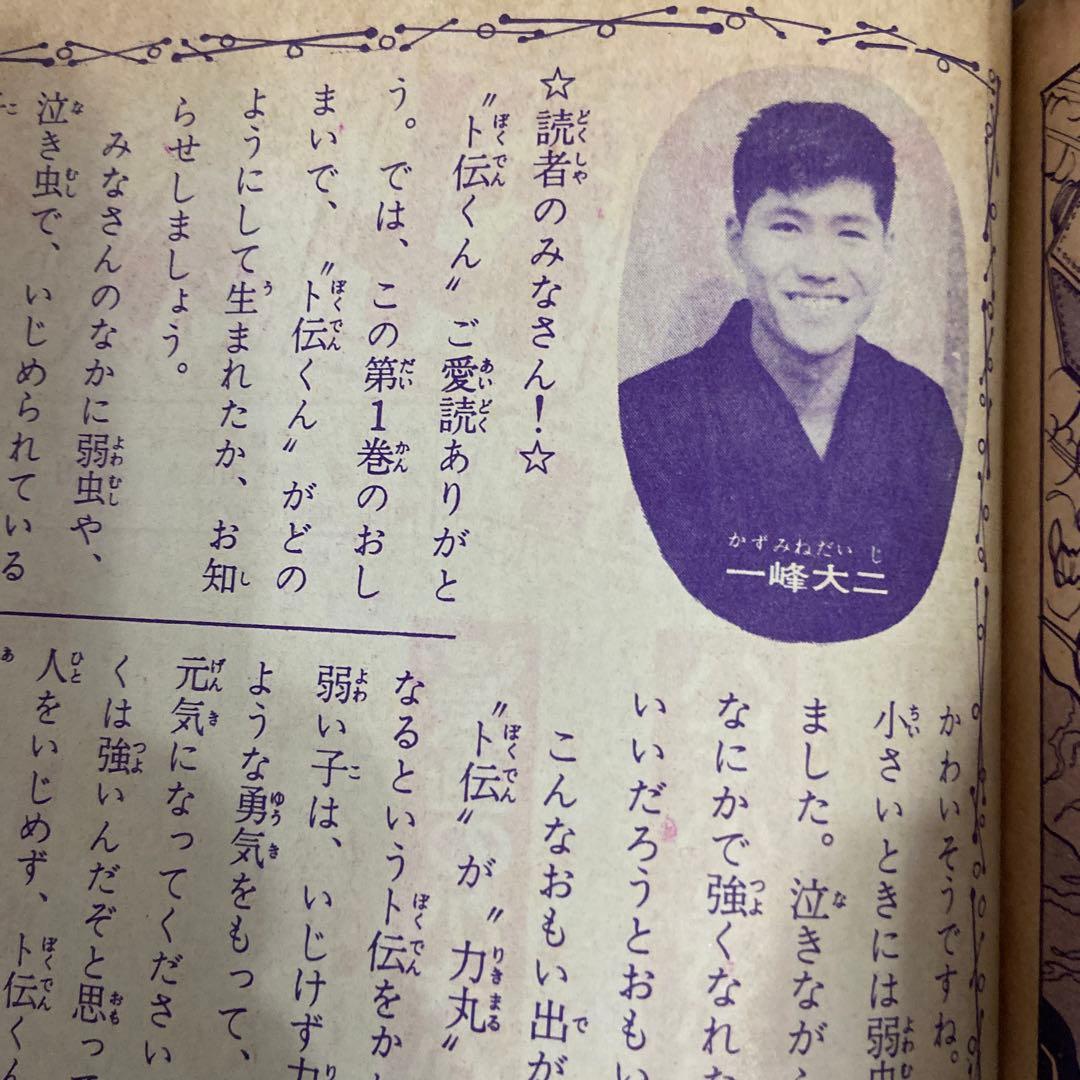 一峰大二
☆読者のみなさん！☆
〝卜伝くん〟ご愛読ありがと
う。では、この第1巻のおし
まいで、〝卜伝くん〟がどの
ようにして生まれたか、お知
らせしましょう。
みなさんのなかに弱虫や、
泣き虫で、いじめられている
かわいそうですね。
小さいときには弱虫
ました。泣きなが
なにかで強くなれ
いいだろうとおもい
こんなおもい出が
〝卜伝〟が〝力丸〟
なるという卜伝をか
弱い子は、いじけず
ような勇気をもって、
元気になってください
くは強いんだぞと思って
人をいじめず、卜伝くん